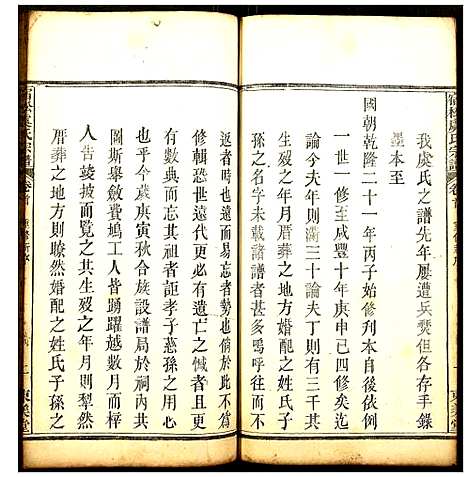 宿松虞氏宗譜
卷首
我虞氏之譜先年屢遭兵燹但各存手錄
墨本至
國朝乾隆二十一年丙子始修刋本自後
一世一修至咸豐十年庚申已四修矣迄
論今夫年則滿三十論夫丁則有三千其
間之生歿之年月厝葬之地方婚配之姓氏子
孫之名字未載諸者甚多嗚呼往而不
返者時也遠而易忘者勢也倘或於此不為
修輯更世遠年代更必有遺亡之憾者且更
于今歲庚寅秋合族設譜局於祠內共
圖斯舉僦費鳩工人皆踴躍越數月而梓
告竣披而覽之其生歿之年月則犁然
厝葬之地方則瞭然婚配之姓氏子孫之
宿松虞氏宗譜
卷首
東美堂